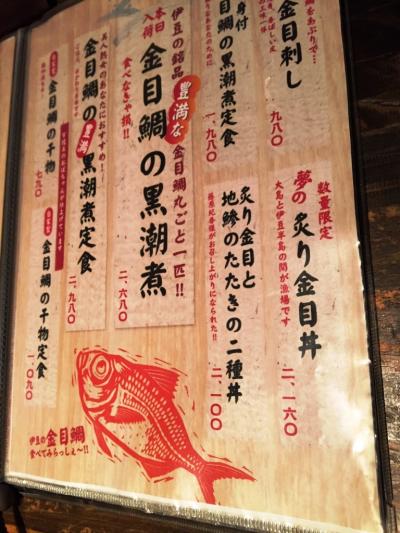 金目刺し
九八〇
数量限定
夢の 炙り金目丼
大島と伊豆半島の間が漁場です
二、一六〇
身付
鯛の黒潮煮定食
一、九八〇
炙り金目と
地鯵のたたきの二種丼
藤原紀香様がお召し上がりになられた!!
二、一〇〇
本日入荷
伊豆の銘品 豊満な 金目鯛丸ごと一匹!!
金目鯛の黒潮煮
食べなきゃ損!!
二、六八〇
美人熟女のあなたにおすすめ!
金目鯛の豊満黒潮煮定食
二、九八〇
自家製
金目鯛の干物
七九〇
自家製
金目鯛の干物定食
一、〇九〇
伊豆の金目鯛
食べてみらっしぇ〜!!